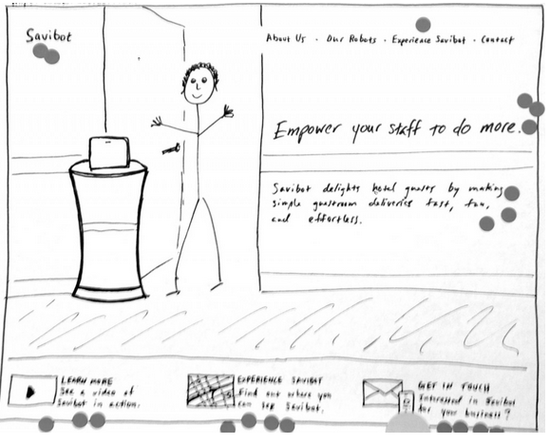 Savibot
About Us - Our Robots - Experience Savibot - Contact
Empower your staff to do more.
Savibot delights hotel guests by making
simple guestroom deliveries fast, fun,
and effortless.
LEARN MORE
See a video of
Savibot in action.
EXPERIENCE SAVIBOT
Find out where you
can see Savibot.
GET IN TOUCH
Interested in Savibot
for your business?